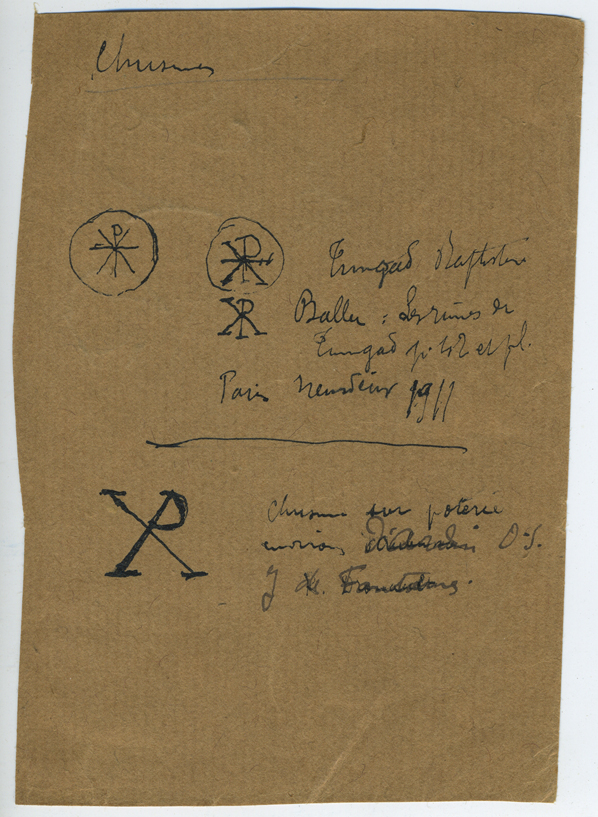 Chrismes
Timgad Baptistère
Ballu : Les ruines de
Timgad p. et pl.
Paris Neurdein 1911
chrisme sur poterie
environs O-S.